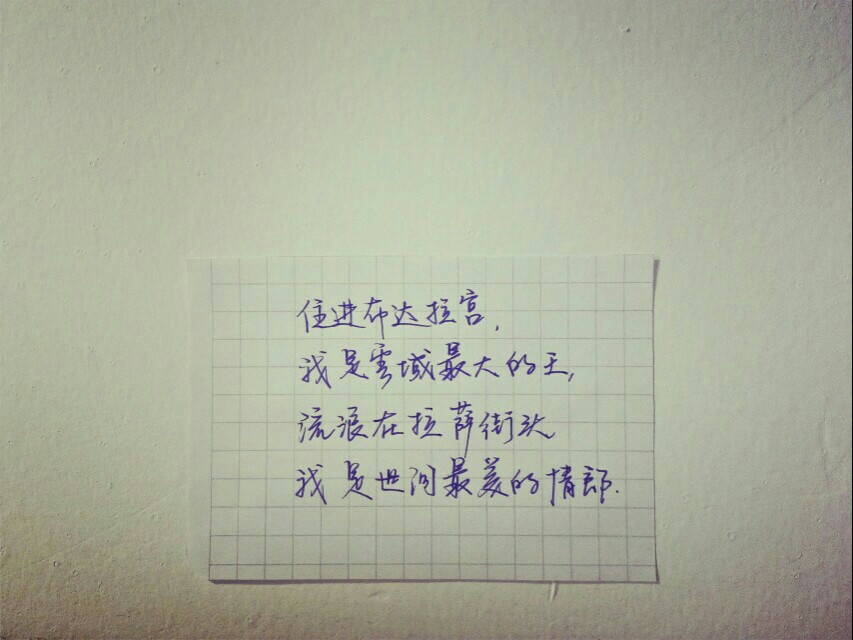 住进布达拉宫,
我是雪域最大的王,
流浪在拉萨街头
我是世间最美的情郎.